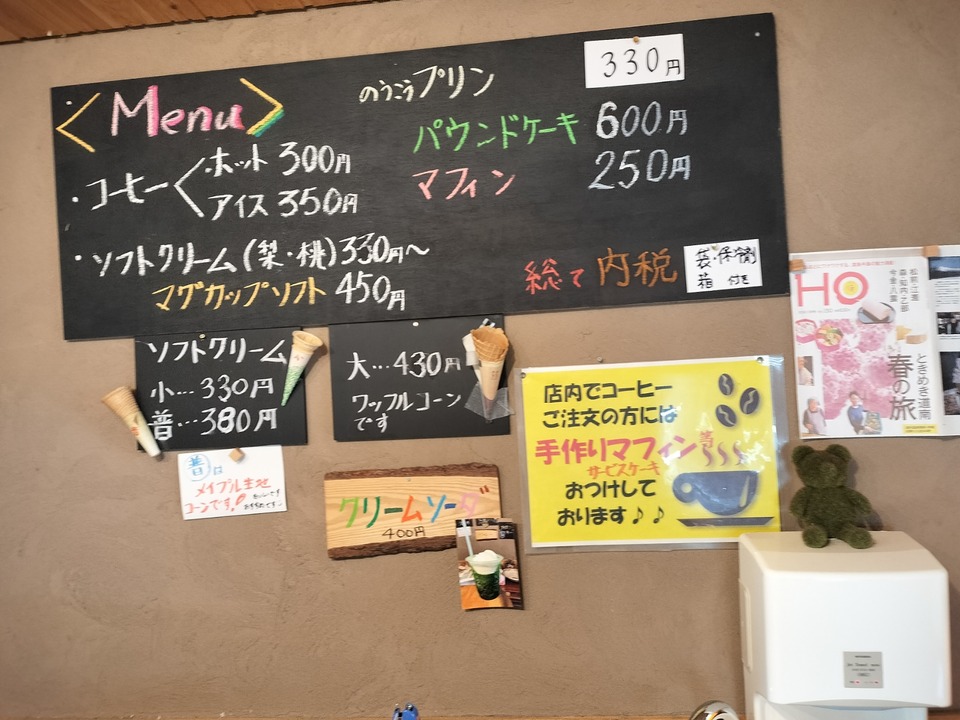 Menu
・コーヒー
・ホット 300円
アイス 350円
・ソフトクリーム(梨・桃)330円〜
マグカップソフト 450円
のうこうプリン 330円
パウンドケーキ 600円
マフィン 250円
総て内税
袋・保冷剤
箱 付き
ソフトクリーム
小…330円
普…380円
大…430円
ワッフルコーン
です
普は
メイプル生地
コーンです!
クリームソーダ
400円
店内でコーヒー
ご注文の方には
手作りマフィン等
サービスケーキ
おつけして
おります♪♪
HO
松前・江差
森・知内・乙部
今金・八雲
ときめき道南
春の旅